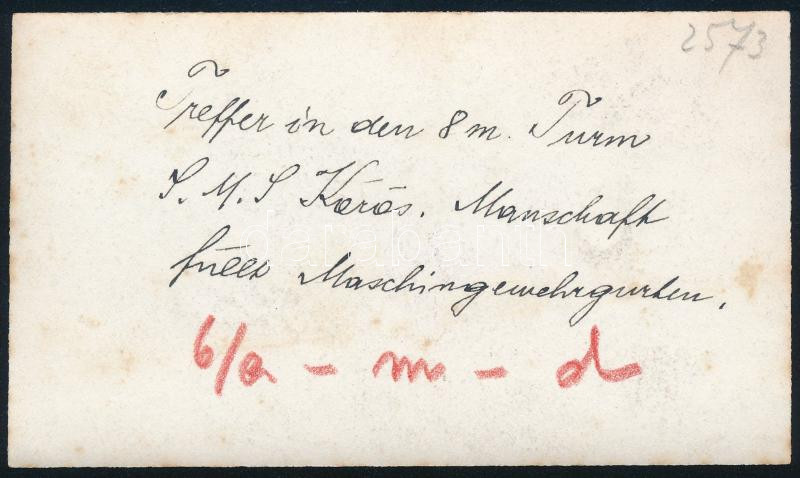 2573
Treffer in den 8 m. Turm
S. M. S Körös. Manschaft
füllt Maschingewehrgurten.
6/a - m - d